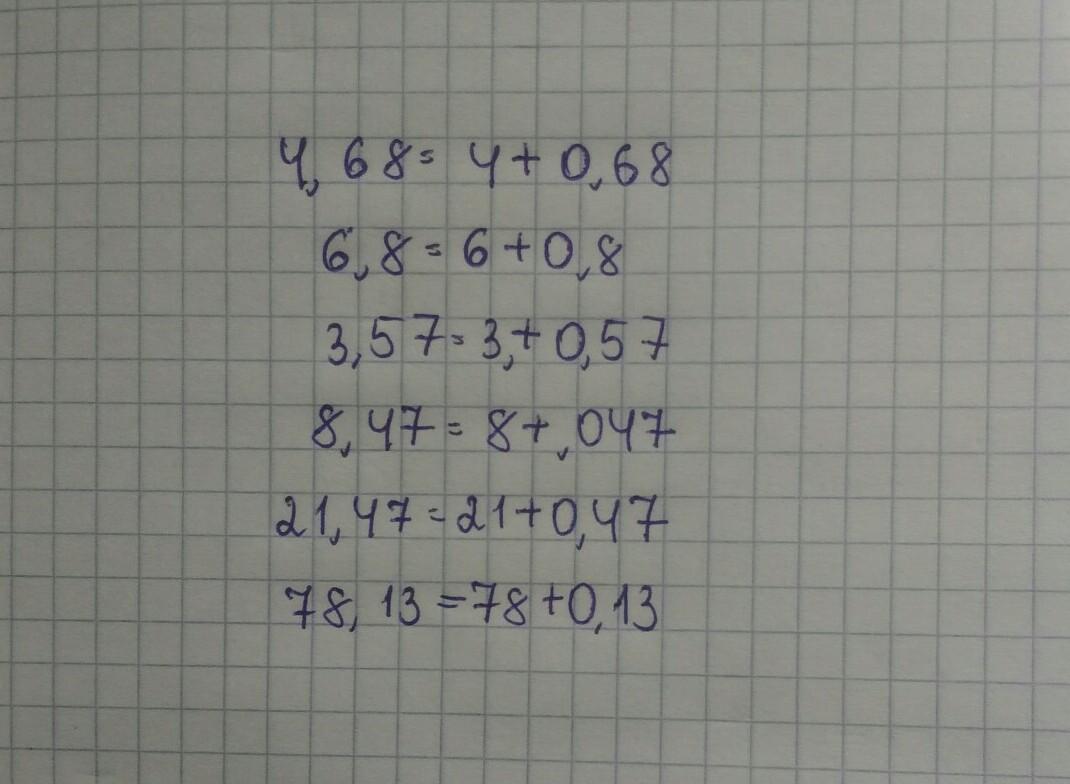 4,68=4+0,68
6,8=6+0,8
3,57=3,+0,57
8,47=8+,047
21,47=21+0,47
78,13=78+0,13